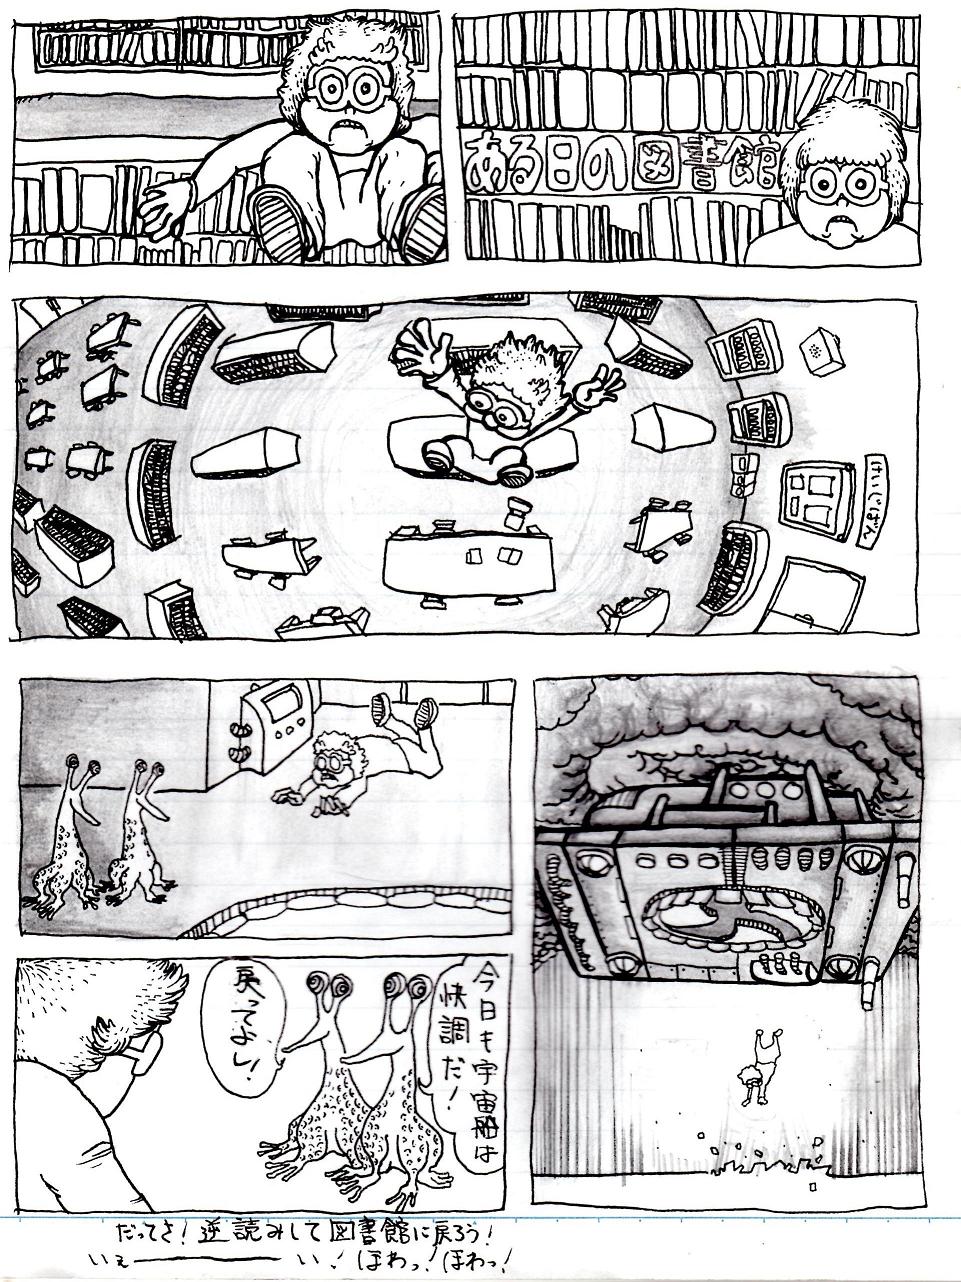 ある日の図書館
けいじばん
今日も宇宙船は
快調だ!
戻ってよし!
だってさ!逆読みして図書館に戻ろう!
いぇーーーーい!ほわっ!ほわっ!